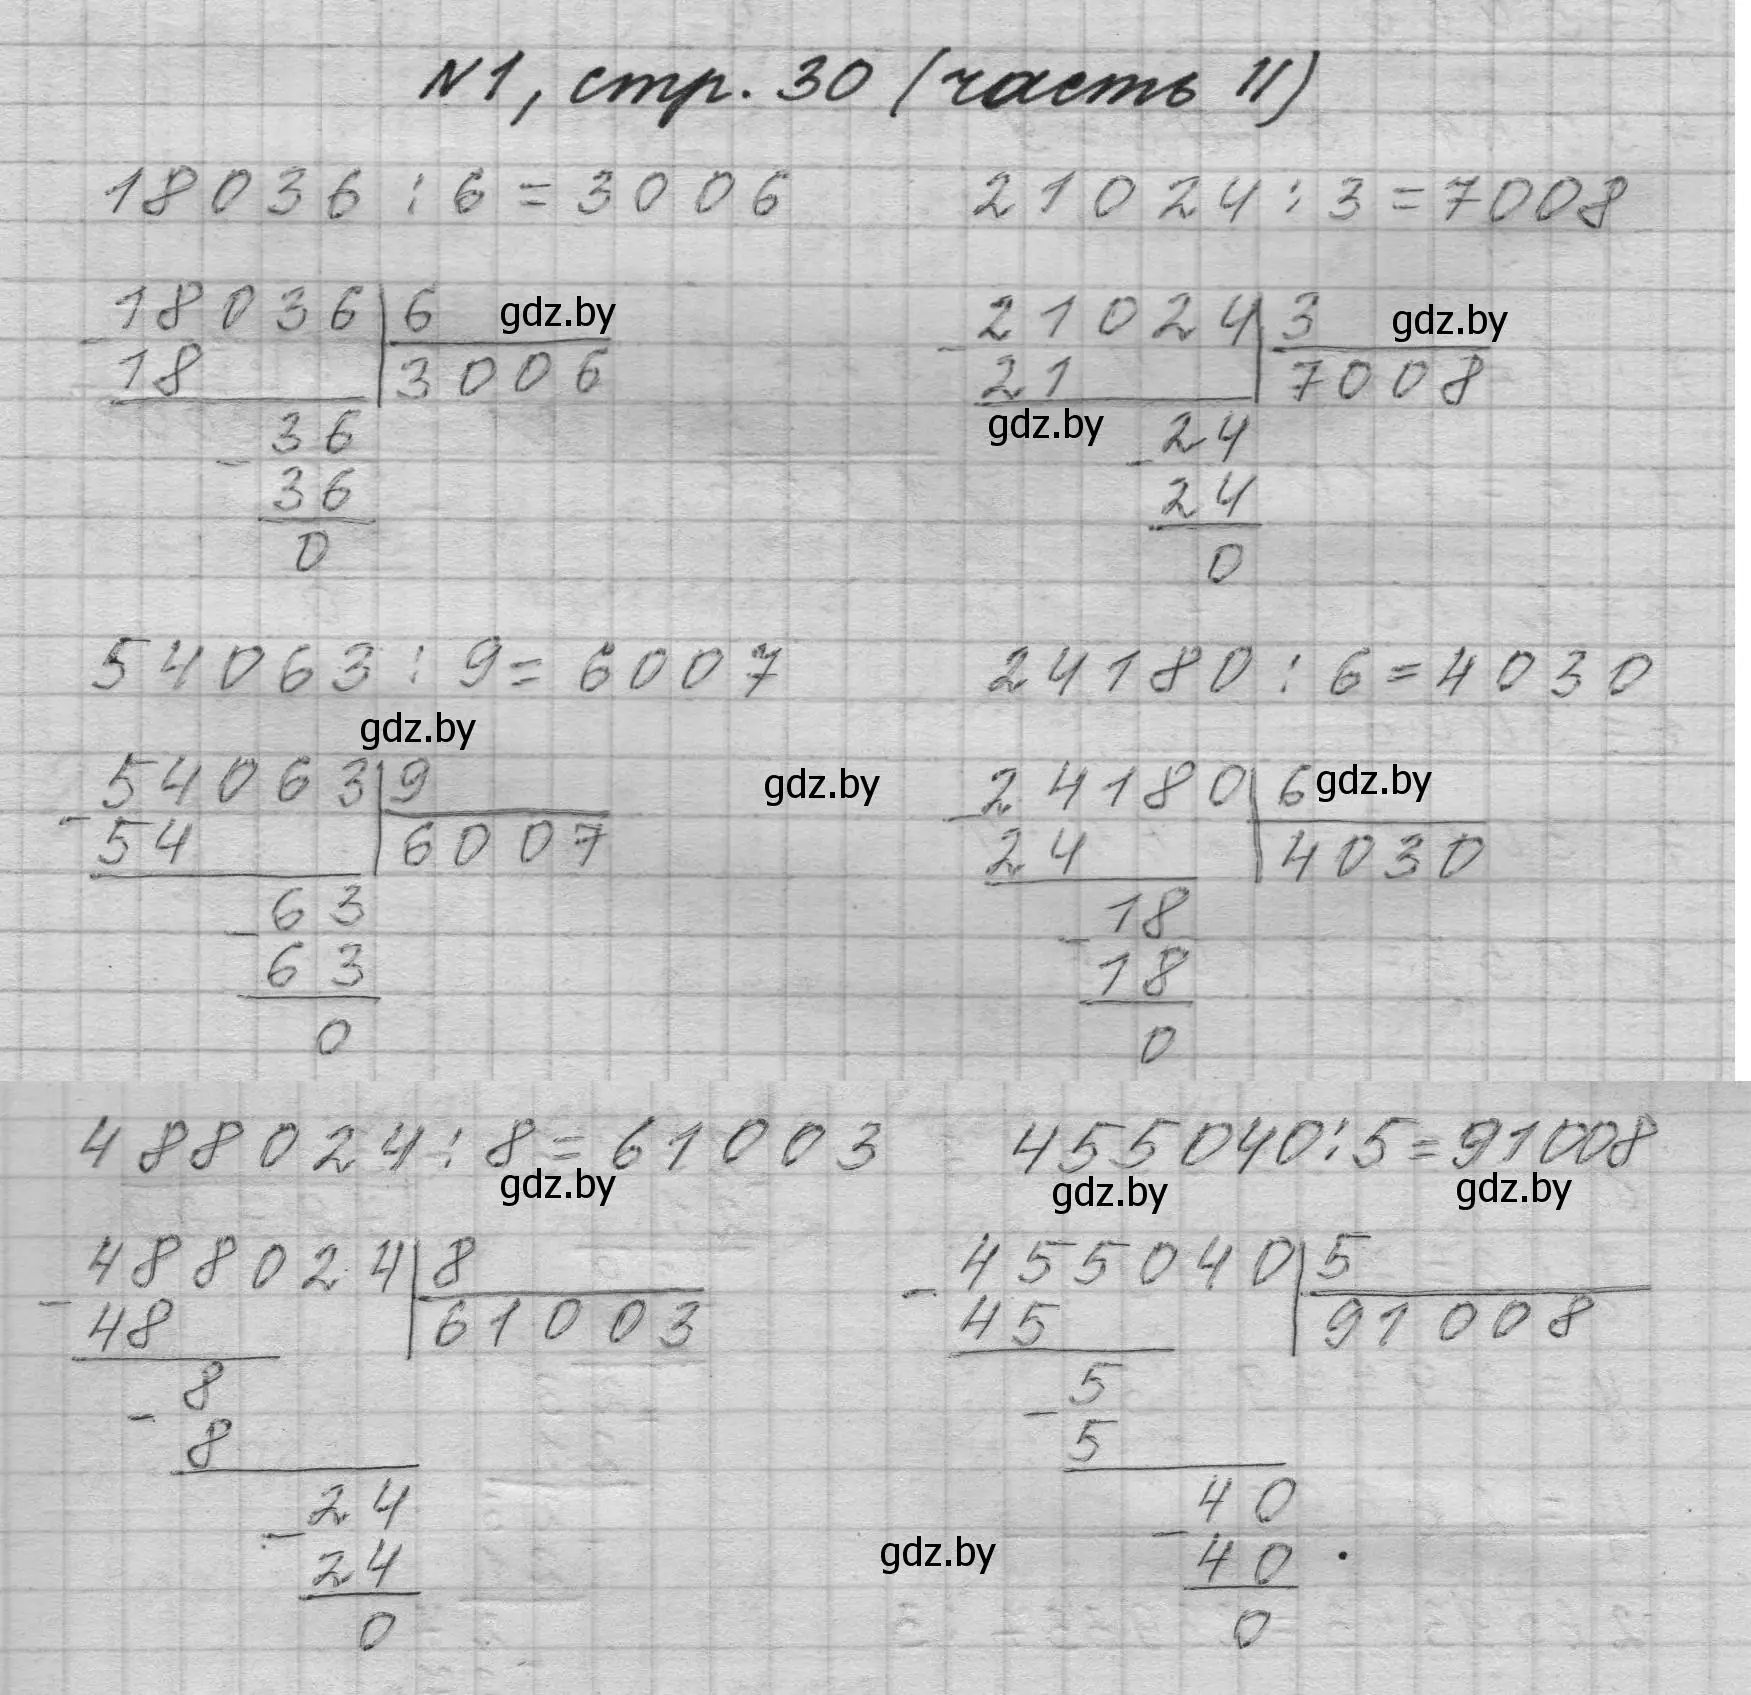 №1, стр. 30 (часть II)
18036 : 6 = 3006
21024 : 3 = 7008
18036 6 gdz.by
- 18 3006
36
- 36
0
21024 3 gdz.by
- 21 7008
gdz.by 24
- 24
0
54063 : 9 = 6007
24180 : 6 = 4030
gdz.by
54063 9
- 54 6007
63
- 63
0
gdz.by
24180 6 gdz.by
- 24 4030
18
- 18
0
488024 : 8 = 61003
gdz.by
455040 : 5 = 91008
gdz.by gdz.by
488024 8
- 48 61003
8
- 8
24
- 24
0
455040 5
- 45 91008
5
- 5
40
- 40
0
gdz.by